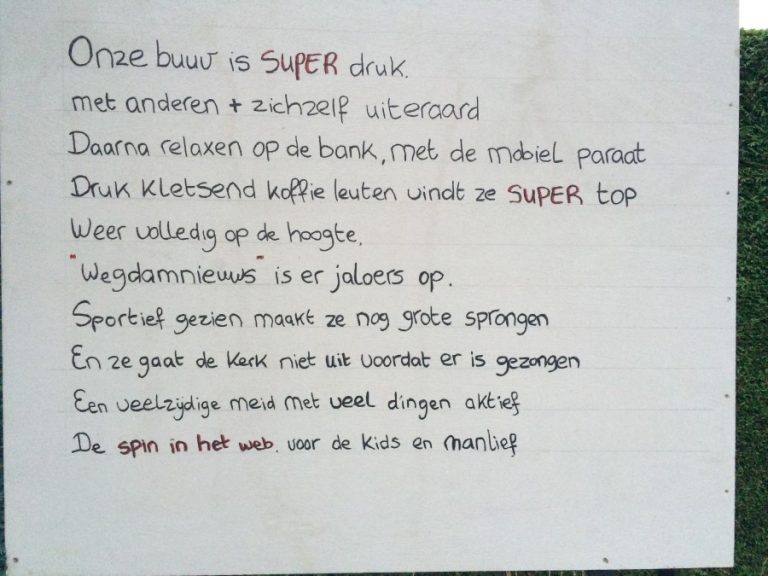 Onze buuv is SUPER druk.
met anderen + zichzelf uiteraard
Daarna relaxen op de bank, met de mobiel paraat
Druk kletsend koffie leuten vindt ze SUPER top
Weer volledig op de hoogte.
"Wegdamnieuws" is er jaloers op.
Sportief gezien maakt ze nog grote sprongen
En ze gaat de kerk niet uit voordat er is gezongen
Een veelzijdige meid met veel dingen aktief
De spin in het web. voor de kids en manlief